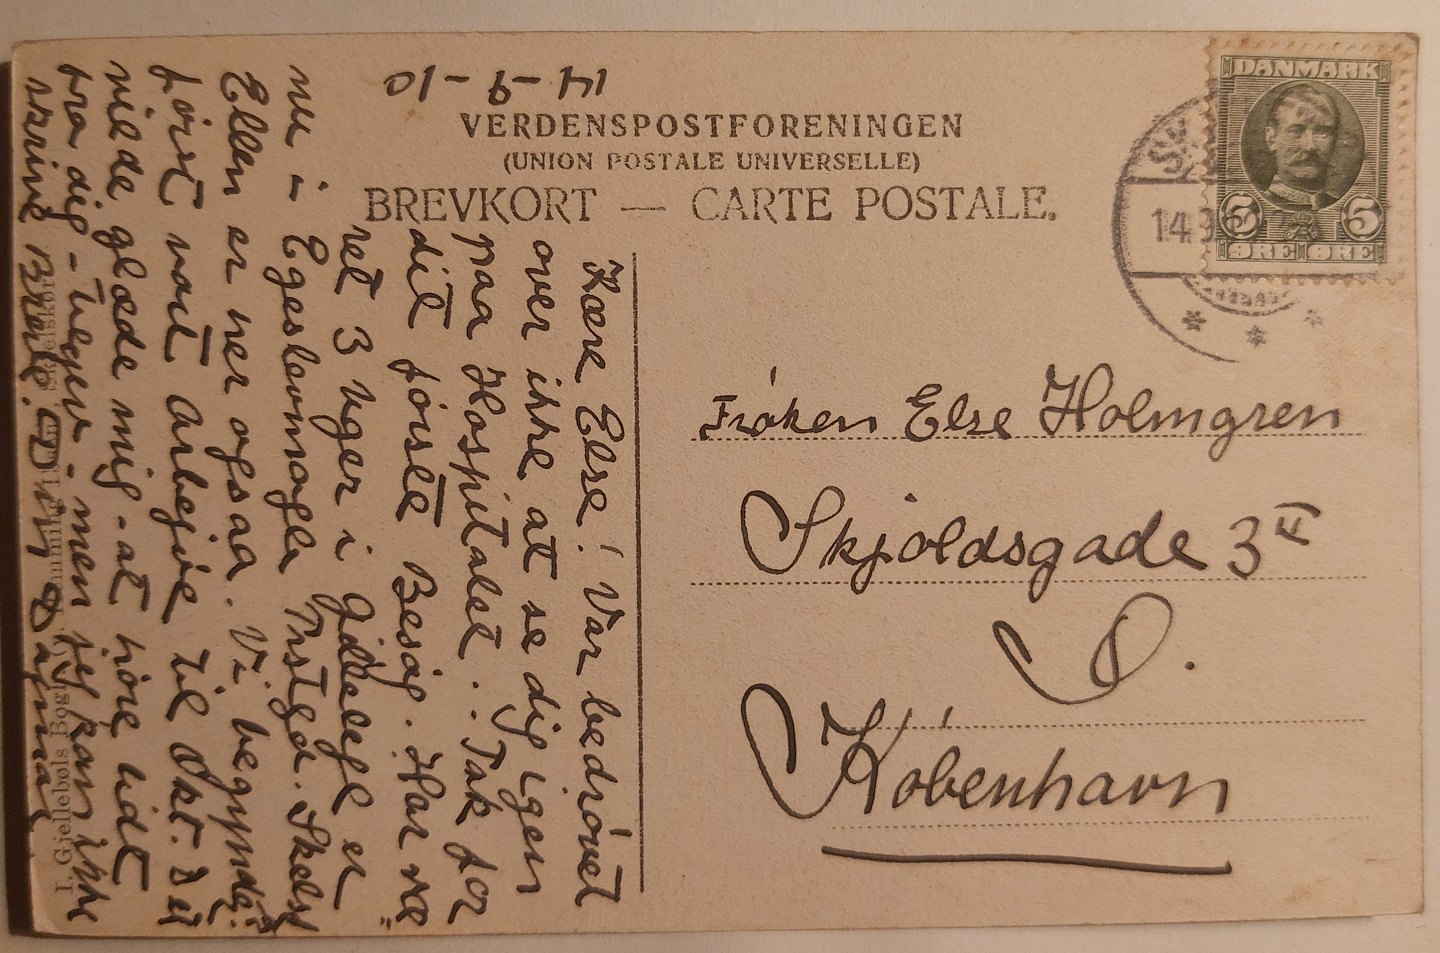 14-9-10
VERDENSPOSTFORENINGEN
(UNION POSTALE UNIVERSELLE)
BREVKORT — CARTE POSTALE.
DANMARK
5 5
ØRE ØRE
SK
14.9
Frøken Else Holmgren
Skjoldsgade 3
Ø.
København
Kære Else! Var bedrøvet
over ikke at se dig igen
paa Hospitalet. . Tak for
dit første Besøg. Har væ
ret 3 Uger i Gilleleje er
nu i Egeslevmagle Skelsk
Ellen er her ogsaa. Vi begynder
først vort Arbejde til Okt. Du
vilde glæde mig - at høre lidt
fra dig - men jeg kan ikke
skrive Brele. Din Dagmar
I. Gjellebøls Bogh Skelskør